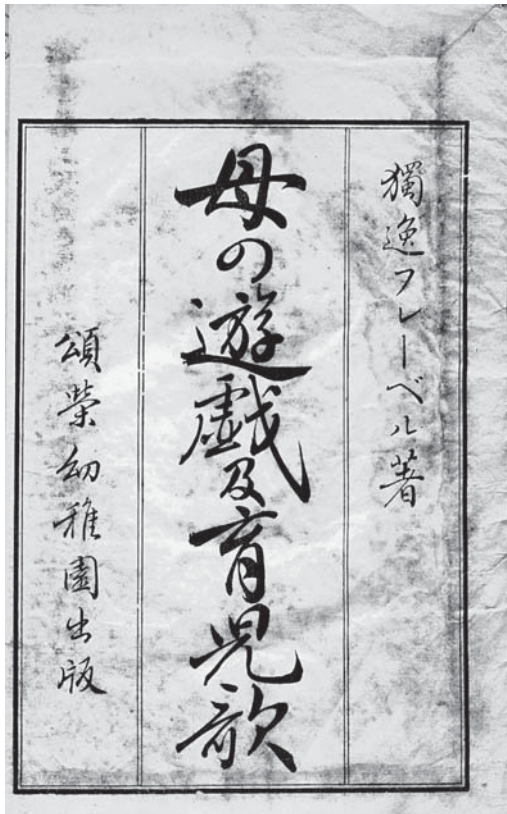 獨逸フレーベル著
母の遊戯及育児歌
頌榮幼稚園出版